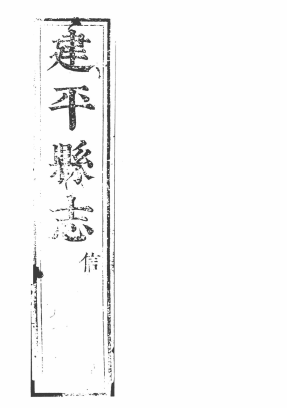 建平縣志
信